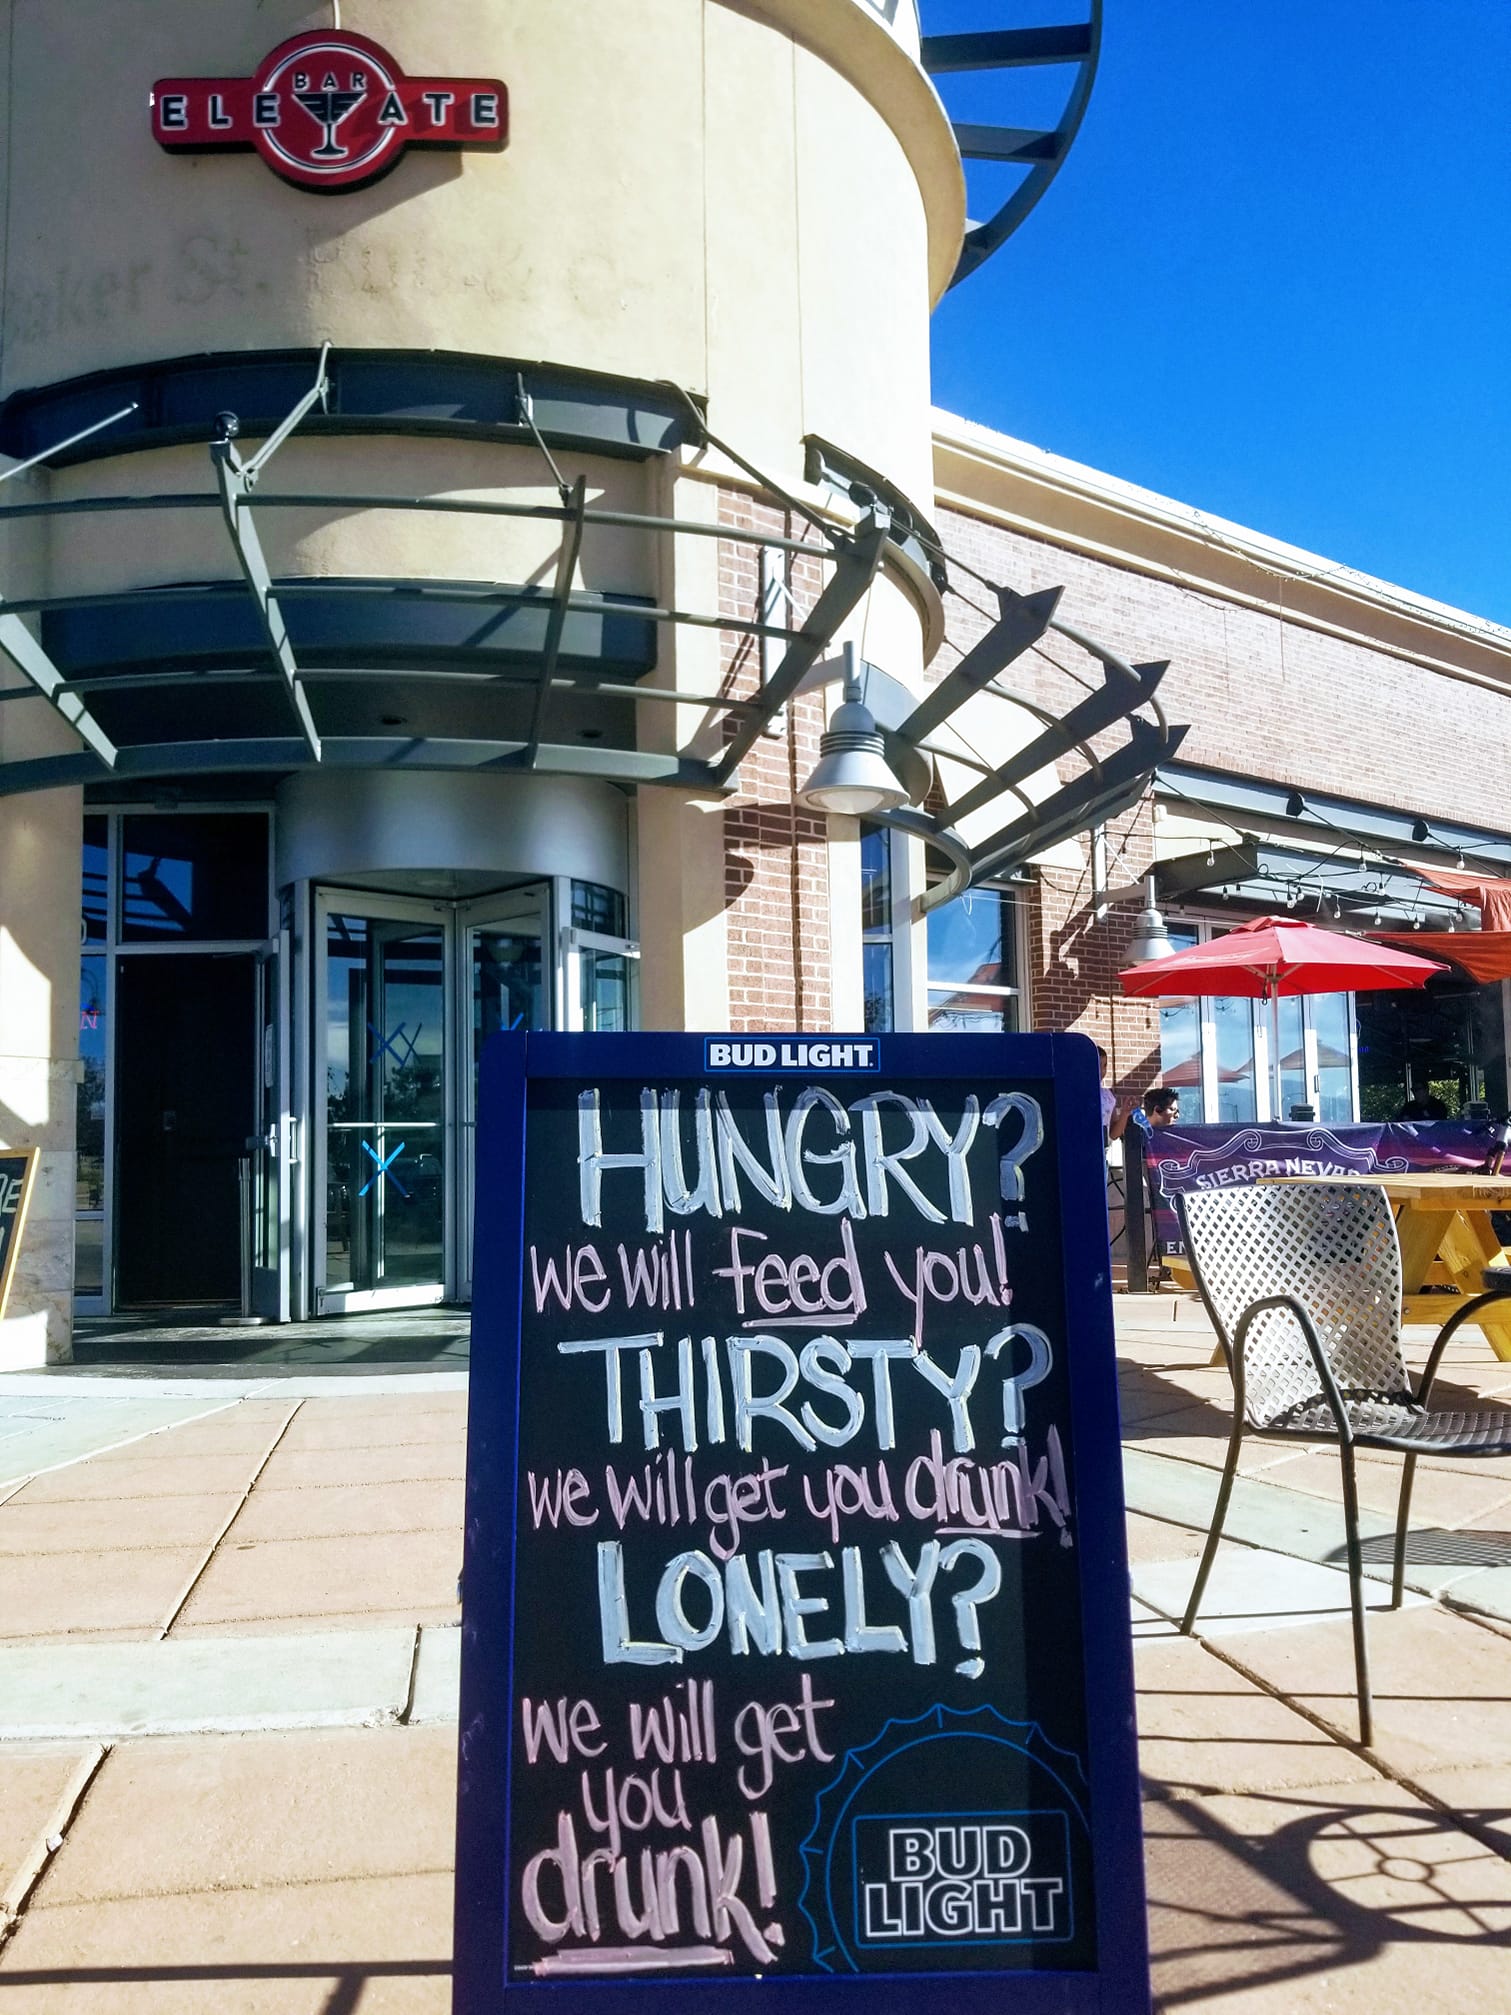 BAR
ELEVATE
Baker St.
BUD LIGHT.
HUNGRY?
we will feed you!
THIRSTY?
we will get you drunk!
LONELY?
we will get
you
drunk!
BUD
LIGHT
SIERRA NEVA